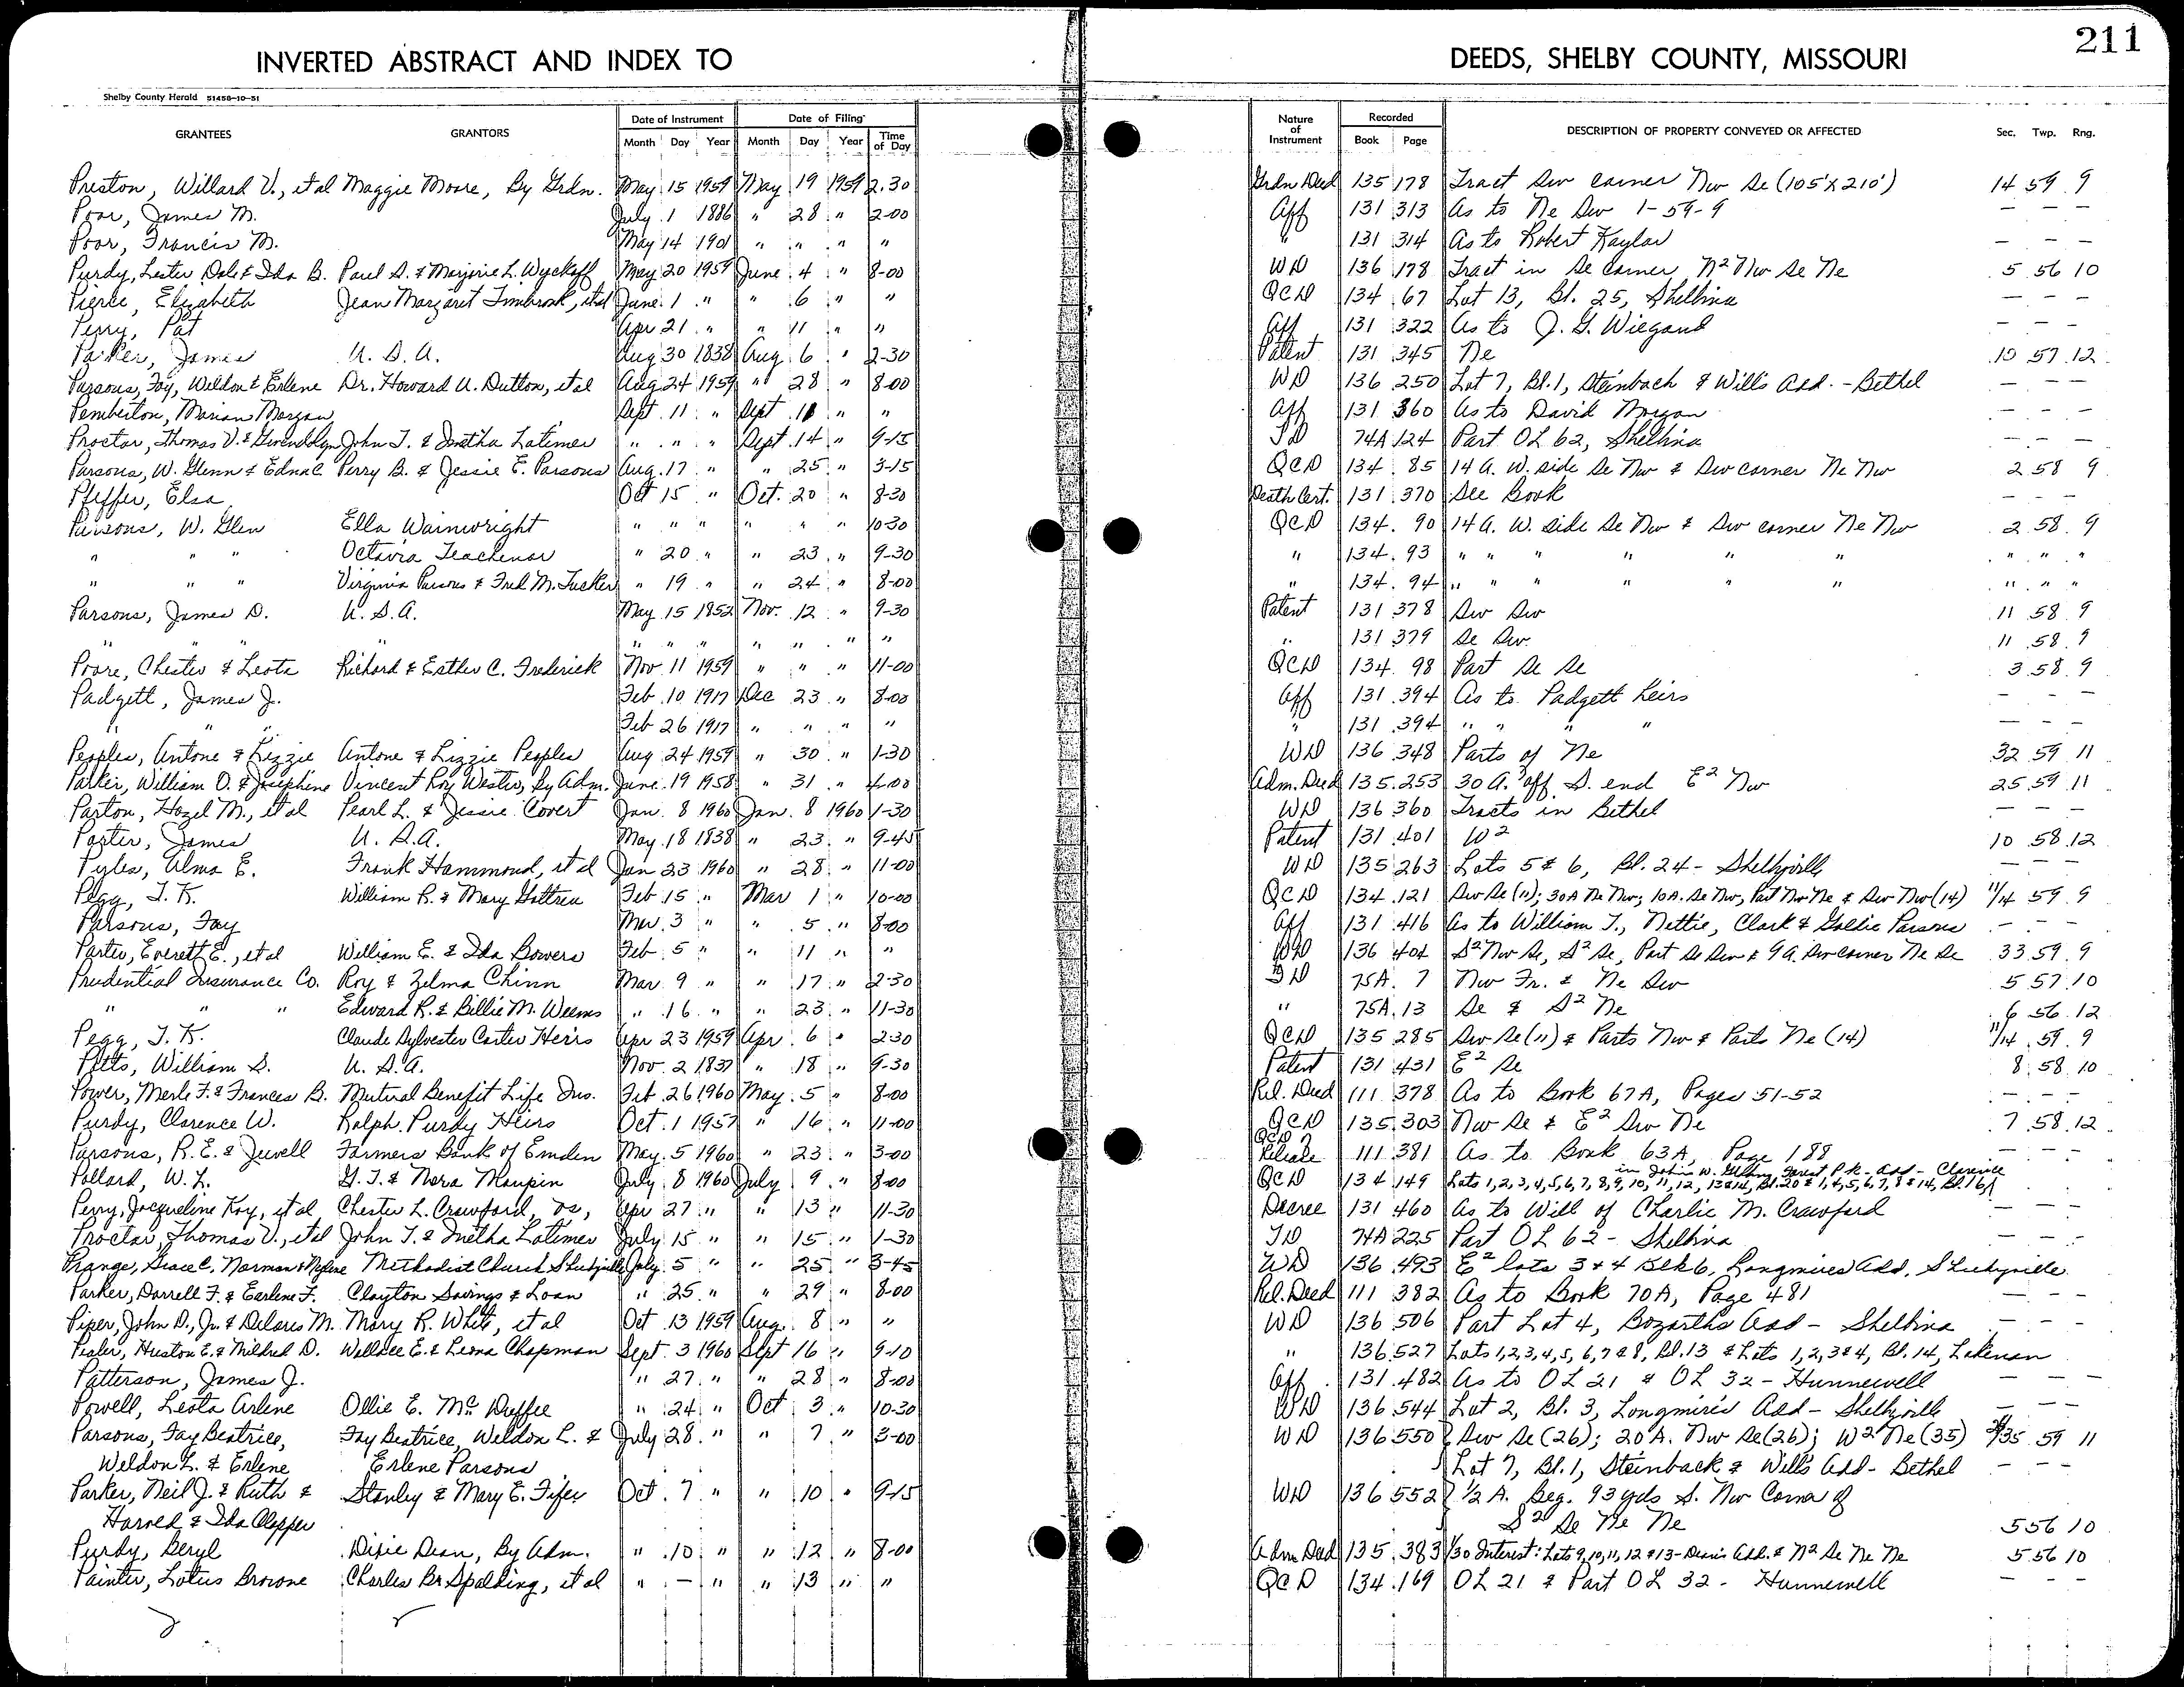 211
INVERTED ABSTRACT AND INDEX TO DEEDS, SHELBY COUNTY, MISSOURI
Shelby County Herald 51458-10-51
GRANTEES GRANTORS Date of Instrument Date of Filing Nature of Instrument Recorded DESCRIPTION OF PROPERTY CONVEYED OR AFFECTED Sec. Twp. Rng.
Month Day Year Month Day Year Time of Day Book Page
Preston, Willard V., et al Maggie Moore, By Grdn. May 15 1959 May 19 1959 2-30 Grdn Deed 135 178 Tract Sw corner Nw Se (105'x210') 14 59 9
Poor, James M. July 1 1886 " 28 " 2-00 Aff 131 313 As to Ne Sw 1-59-9 — — —
Poor, Francis M. May 14 1901 " " " " " 131 314 As to Robert Kaylor — — —
Purdy, Lester Dale & Ida B. Paul S. & Marjorie L. Wyckoff May 20 1959 June 4 " 8-00 WD 136 178 Tract in Se corner N2 Nw Se Ne 5 56 10
Pierce, Elizabeth Jean Margaret Timbrook, et al June 1 " " 6 " " QCD 134 67 Lot 13, Bl. 25, Shelbina — — —
Perry, Pat Apr 21 " " 11 " " Aff 131 322 As to J. G. Wiegand — — —
Parker, James U. S. A. Aug 30 1838 Aug. 6 " 2-30 Patent 131 345 Ne 10 57 12
Parsons, Fay, Weldon & Erlene Dr. Howard U. Dutton, et al Aug 24 1959 " 28 " 8-00 WD 136 250 Lot 7, Bl. 1, Steinbach & Will's Add. - Bethel — — —
Pemberton, Marian Morgan Sept. 11 " Sept 11 " " Aff 131 360 As to David Morgan — — —
Proctor, Thomas V. & Gwendolyn John T. & Inetha Latimer " " " Sept. 14 " 9-15 TD 74A 124 Part OL 62, Shelbina — — —
Parsons, W. Glenn & Edna C. Perry B. & Jessie E. Parsons Aug. 17 " " 25 " 3-15 QCD 134 85 14 A. W. side Se Nw & Sw corner Ne Nw 2 58 9
Pfeffer, Elsa Oct 15 " Oct. 20 " 8-30 Death Cert. 131 370 See Book — — —
Parsons, W. Glen Ella Wainwright " " " " " " 10-30 QCD 134 90 14 A. W. side Se Nw & Sw corner Ne Nw 2 58 9
" " " Octavia Teachenor " 20 " " 23 " 9-30 " 134 93 " " " " " " " " "
" " " Virginia Parsons & Fred M. Tucker " 19 " " 24 " 8-00 " 134 94 " " " " " " " " "
Parsons, James D. U. S. A. May 15 1852 Nov. 12 " 9-30 Patent 131 378 Sw Sw 11 58 9
" " " " " " " " " " " " 131 379 Se Sw 11 58 9
Poore, Chester & Leota Richard & Esther C. Frederick Nov 11 1959 " " " 11-00 QCD 134 98 Part Se Se 3 58 9
Padgett, James J. Feb 10 1917 Dec 23 " 8-00 Aff 131 394 As to Padgett heirs — — —
" " Feb 26 1917 " " " " " 131 394 " " " " — — —
Peoples, Antone & Lizzie Antone & Lizzie Peoples Aug 24 1959 " 30 " 1-30 WD 136 348 Parts of Ne 32 59 11
Parker, William O. & Josephine Vincent Roy Wester, By Adm. June 19 1958 " 31 " 4-00 Adm. Deed 135 253 30 A. off S. end E2 Nw 25 59 11
Parton, Hazel M., et al Pearl L. & Jessie Covert Jan. 8 1960 Jan. 8 1960 1-30 WD 136 360 Tracts in Bethel — — —
Porter, James U. S. A. May 18 1838 " 23 " 9-45 Patent 131 401 W2 10 58 12
Pyles, Alma E. Frank Hammond, et al Jan 23 1960 " 28 " 11-00 WD 135 263 Lots 5 & 6, Bl. 24 - Shelbyville — — —
Pegg, J. K. William R. & Mary Feb 15 " Mar 1 " 10-00 QCD 134 121 Sw Se (11); 30A Ne Nw; 10A. Se Nw, Part Nw Ne & Sw Nw (14) 11/14 59 9
Parsons, Fay Mar. 3 " " 5 " 8-00 Aff 131 416 As to William T., Nettie, Clark & Goldie Parsons — — —
Porter, Everett E., et al William E. & Ida Bowers Feb 5 " " 11 " " WD 136 404 S2 Nw Se, S2 Se, Part Se Sw & 9 A. Sw corner Ne Se 33 59 9
Prudential Insurance Co. Roy & Zelma Chinn Mar. 9 " " 17 " 2-30 TD 75A 7 Nw Fr. & Ne Sw 5 57 10
" " " Edward R. & Billie M. Weems " 16 " " 23 " 11-30 " 75A 13 Se & S2 Ne 6 56 12
Pegg, J. K. Claude Sylvester Carter Heirs Apr 23 1959 Apr. 6 " 2-30 QCD 135 285 Sw Se (11) & Parts Nw & Parts Ne (14) 11/14 59 9
Pitts, William S. U. S. A. Nov. 2 1837 " 18 " 9-30 Patent 131 431 E2 Se 8 58 10
Power, Merle F. & Frances B. Mutual Benefit Life Ins. Feb. 26 1960 May 5 " 8-00 Rel. Deed 111 378 As to Book 67A, Pages 51-52 — — —
Purdy, Clarence W. Ralph Purdy Heirs Oct. 1 1957 " 16 " 11-00 QCD 135 303 Nw Se & E2 Sw Ne 7 58 12
Parsons, R. E. & Juvell Farmers Bank of Emden May 5 1960 " 23 " 3-00 QCD & Release 111 381 As to Book 63A, Page 188
Pollard, W. L. G. T. & Nora Maupin July 8 1960 July 9 " 8-00 QCD 134 149 Lots 1, 2, 3, 4, 5, 6, 7, 8, 9, 10, 11, 12, 13 & 14, Bl. 20 & 1, 4, 5, 6, 7, 8 & 14, Bl. 16 in John W. Forest Pk. Add - Clarence
Perry, Jacqueline Kay, et al Chester L. Crawford, vs, Apr 27 " " 13 " 11-30 Decree 131 460 As to Will of Charlie M. Crawford — — —
Proctor, Thomas V., et al John T. & Inetha Latimer July 15 " " 15 " 1-30 TD 74A 225 Part OL 62 - Shelbina — — —
Prange, Grace C., Norman & Methodist Church Shelbyville July 5 " " 25 " 3-45 WD 136 493 E2 lots 3 + 4 Blk 6, Longmires Add. Shelbyville
Parker, Darrell F. & Earlene F. Clayton Savings & Loan " 25 " " 29 " 8-00 Rel. Deed 111 382 As to Book 70A, Page 481 — — —
Piper, John D., Jr. & Delores M. Mary R. White, et al Oct 13 1959 Aug. 8 " " WD 136 506 Part Lot 4, Bozarths Add - Shelbina — — —
Huston E. & Mildred D. Wallace E. & Leona Chapman Sept. 3 1960 Sept 16 " 9-10 " 136 527 Lots 1,2,3,4,5,6,7 & 8, Bl. 13 & Lots 1,2,3 & 4, Bl. 14, Lakenan
Patterson, James J. " 27 " " 28 " 8-00 Aff 131 482 As to OL 21 & OL 32 - Hunnewell — — —
Powell, Leota Arlene Ollie E. McDuffee " 24 " Oct 3 " 10-30 WD 136 544 Lot 2, Bl. 3, Longmire's Add - Shelbyville — — —
Parsons, Fay Beatrice, Fay Beatrice, Weldon L. & July 28 " " 7 " 3-00 WD 136 550 Sw Se (26); 20 A. Nw Se (26); W2 Ne (35) 26/35 59 11
Weldon L. & Erlene Erlene Parsons Lot 7, Bl. 1, Steinback & Will's Add - Bethel — — —
Parker, Neil J. & Ruth & Stanley & Mary E. Fifer Oct. 7 " " 10 " 9-15 WD 136 552 1/2 A. Beg. 93 yds S. Nw Corner of
Harold & Ida Clapper S2 Se Ne Ne 5 56 10
Purdy, Beryl Dixie Dean, By Adm. " 10 " " 12 " 8-00 Adm Deed 135 383 1/30 Interest: Lots 9, 10, 11, 12 & 13 - Dean's Add. & N2 Se Ne Ne 5 56 10
Painter, Lotus Browne Charles B. Spalding, et al " — " " 13 " " QCD 134 169 OL 21 & Part OL 32 - Hunnewell — — —